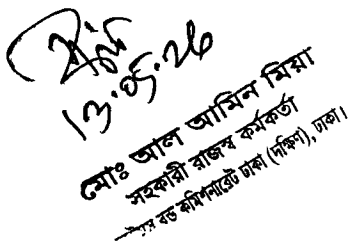 ১৩.০৫.২৬
মোঃ আল আমিন মিয়া
সহকারী রাজস্ব কর্মকর্তা
বন্ড কমিশনারেট ঢাকা (দক্ষিণ), ঢাকা।